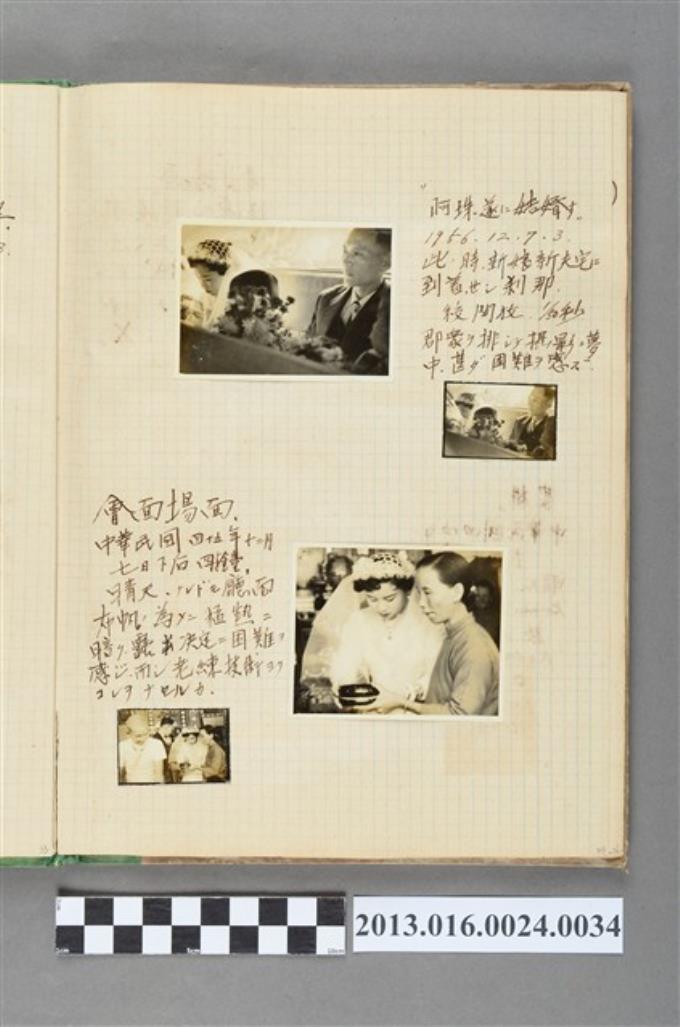 阿珠遂に結婚す。
1956.12.7.3.
此ノ時、新婦新夫宅ニ
到着セシ刹那.
絞開放
群衆ヲ排シテ撮影ノ夢
中、甚ダ困難ヲ感ズ.
會面場面.
中華民国四十五年十二月
七日下后四鐘.
晴天、ケレドモ廳面
布帆ノ為メニ極熱ニ
暗ク露出決定ニ困難ヲ
感ジ.而シ老練技術ヨク
コレヲナセルカ.
2013.016.0024.0034